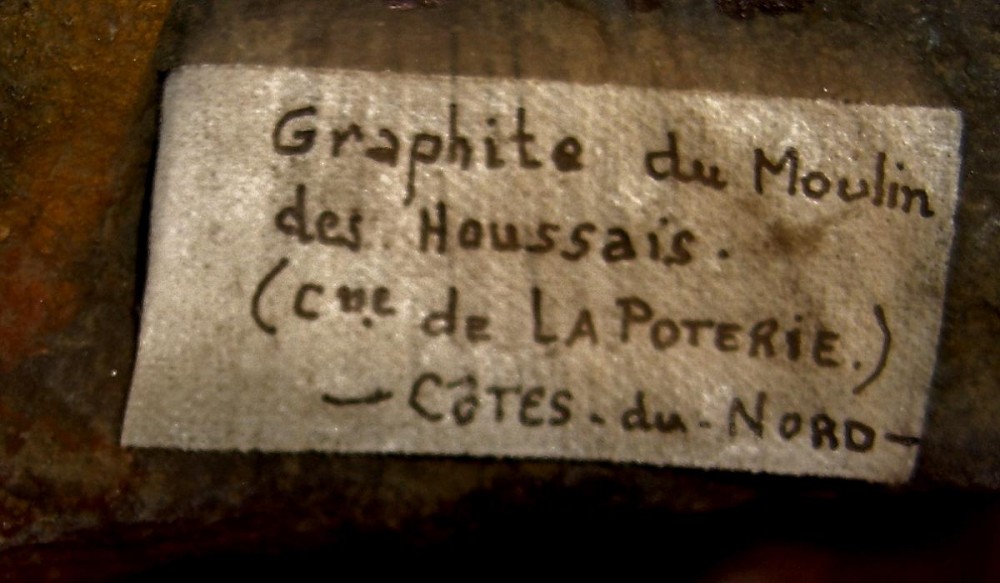 Graphite du Moulin
des Houssais.
(Cne de LA POTERiE.)
- CôTES-du-NORD-